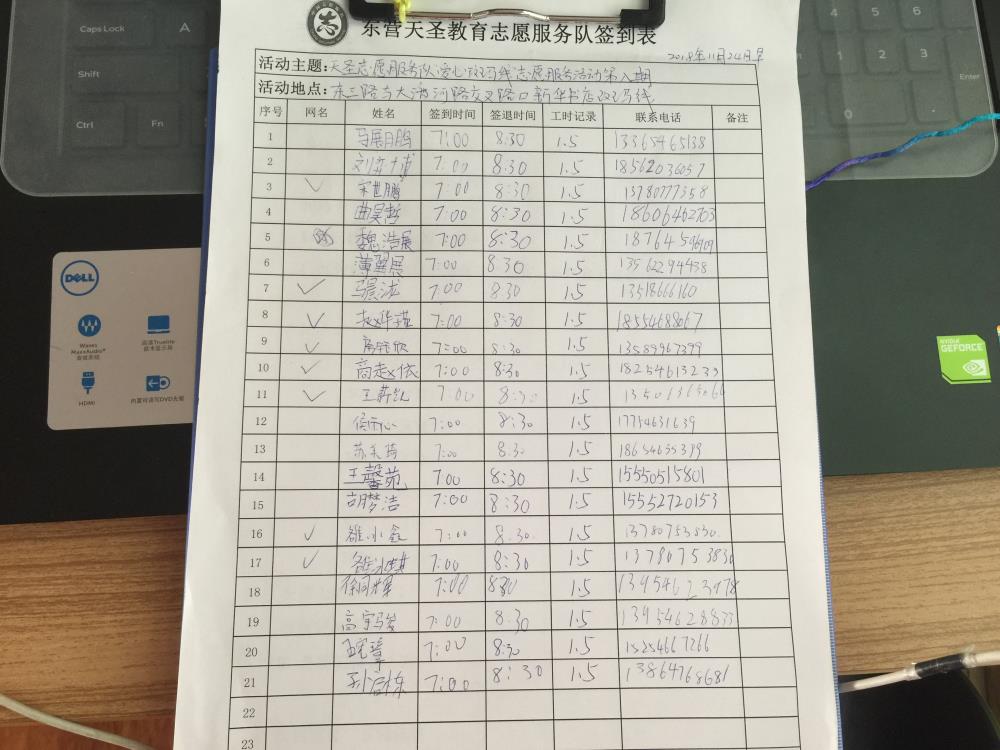 Caps Lock
A
Shift
Ctrl
Fn
4
5
6
1
2
3
0
Enter
DELL
Waves
MaxxAudio®
高清Truelife
HDMI
内置可读写DVD光驱
NVIDIA
GEFORCE
志
东营天圣教育志愿服务队签到表
2018年11月24日早
活动主题:天圣志愿服务队爱心斑马线志愿服务活动第八期
活动地点:东三路与大渡河路交叉路口新华书店斑马线
序号 网名 姓名 签到时间 签退时间 工时记录 联系电话 备注
1 马展鹏 7:00 8:30 1.5 13365465138
2 7:00 8:30 1.5 18562036057
3 宋世鹏 7:00 8:30 1.5 13780777358
4 曲昊哲 7:00 8:30 1.5 18606462703
5 魏浩展 7:00 8:30 1.5
6 薄翼展 7:00 8:30 1.5 13562294438
7 7:00 8:30 1.5 13518666160
8 7:00 8:30 1.5 18554688067
9 7:00 8:30 1.5 13589967399
10 高赵依 7:00 8:30 1.5 18254613239
11 7:00 8:30 1.5
12 7:00 8:30 1.5 17754631639
13 7:00 8:30 1.5 18654655399
14 王馨苑 7:00 8:30 1.5 15550515801
15 胡梦洁 7:00 8:30 1.5 15552720153
16 雒小鑫 7:00 8:30 1.5 13780753830
17 7:00 8:30 1.5 13780753830
18 7:00 8:30 1.5 13954623978
19 高宇骏 7:00 8:30 1.5 13954628833
20 7:00 8:30 1.5 15254667266
21 7:00 8:30 1.5 13864768681
22
23